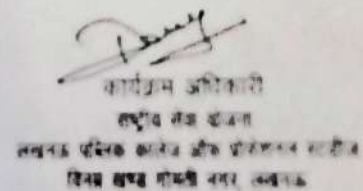 कार्यक्रम अधिकारी
राष्ट्रीय सेवा योजना
लखनऊ पब्लिक कालेज ऑफ प्रोफेशनल स्टडीज
विनम्र खण्ड गोमती नगर लखनऊ